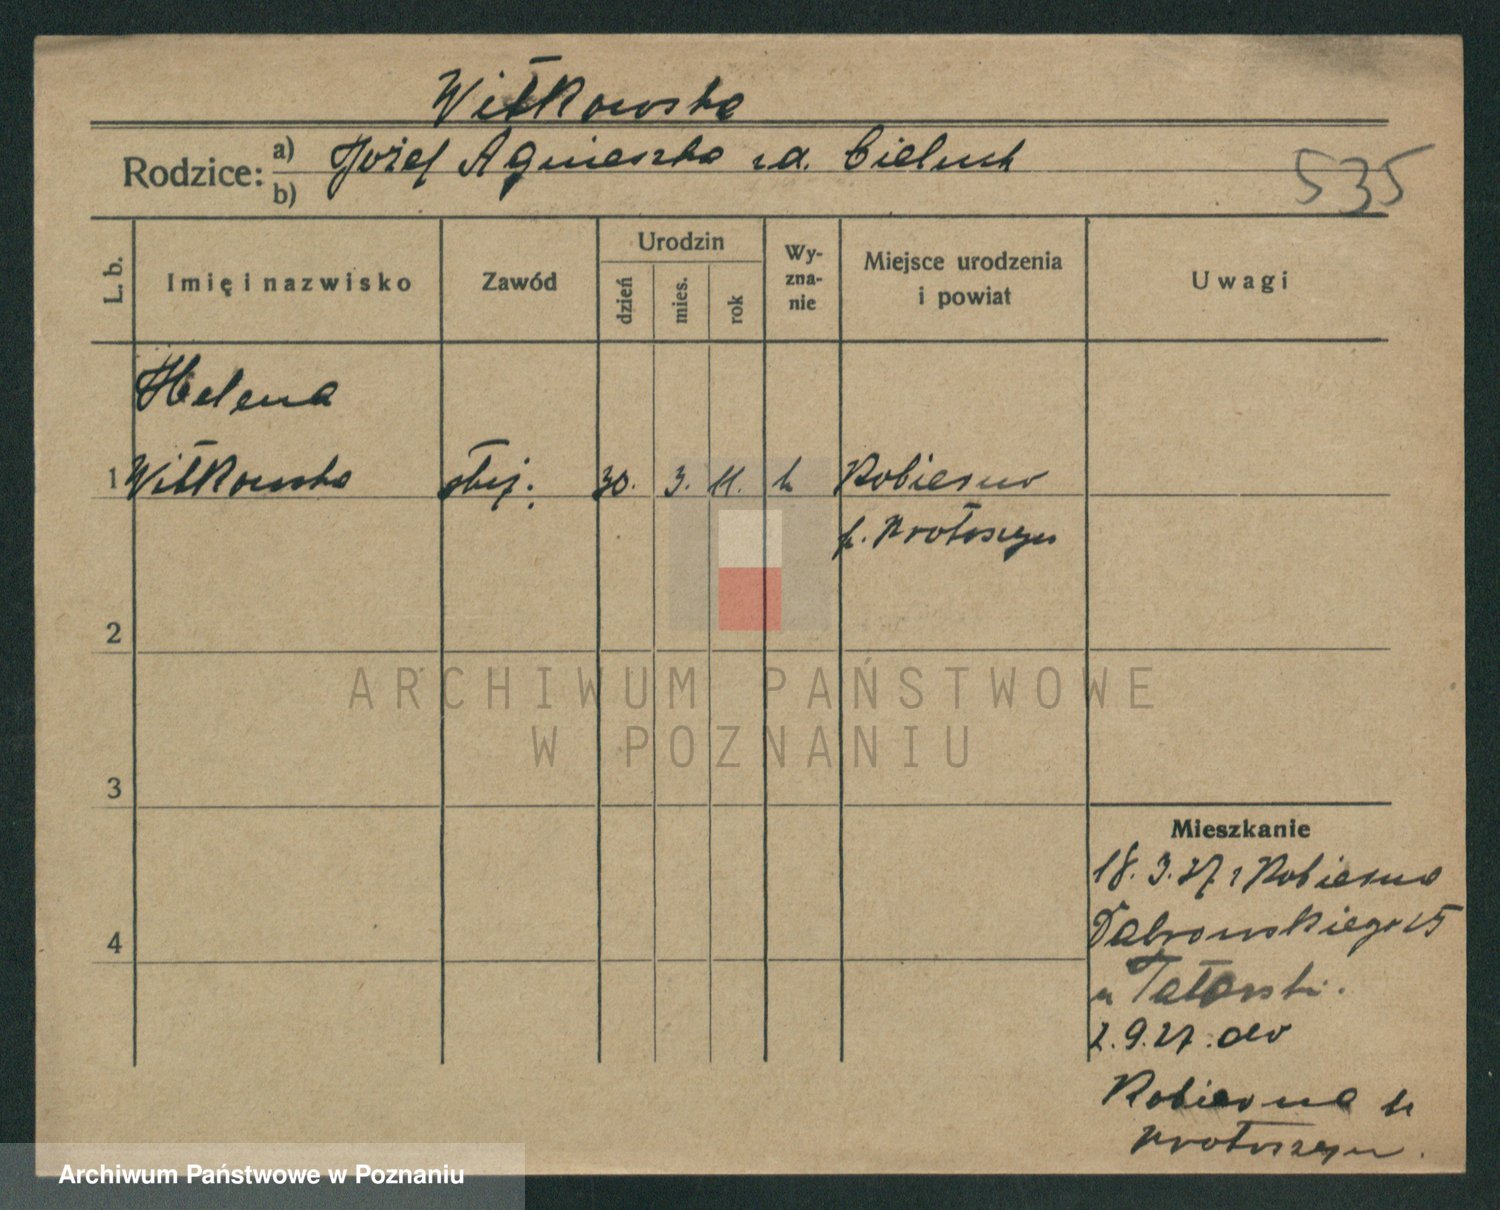 Witkowska
Rodzice: a) Józef Agnieszka z d. Cieluch
b)
535
L. b.
Imię i nazwisko
Zawód
Urodzin
dzień
mies.
rok
Wy-
zna-
nie
Miejsce urodzenia
i powiat
Uwagi
Helena
1 Witkowska służ. 30. 3. 11. k Kobierno
p. Krotoszyn
2
3
4
ARCHIWUM PAŃSTWOWE
W POZNANIU
Mieszkanie
18. 3. 27 z Kobierna
Dąbrowskiego 25
u Tatarski.
2. 9. 27. do
Kobierna k
Krotoszyn.
Archiwum Państwowe w Poznaniu